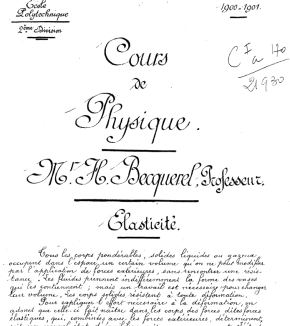 École
Polytechnique
2ème Division
1900-1901.
Cours
de
Physique.
Mr H. Becquerel, Professeur.
Elasticité.
Tous les corps pondérables, solides liquides ou gazeux,
occupent dans l'espace, un certain volume qu'on ne peut modifier
par l'application de forces extérieures, sans rencontrer une résis-
tance. Les fluides prennent indifféremment la forme des vases
qui les contiennent ; mais un travail est nécessaire pour changer
leur volume, les corps solides résistent à toute déformation.
Pour expliquer l'effort nécessaire à la déformation, on
admet que celle-ci fait naître dans les corps des forces dites forces
élastiques, qui, combinées avec les forces extérieures, déterminent